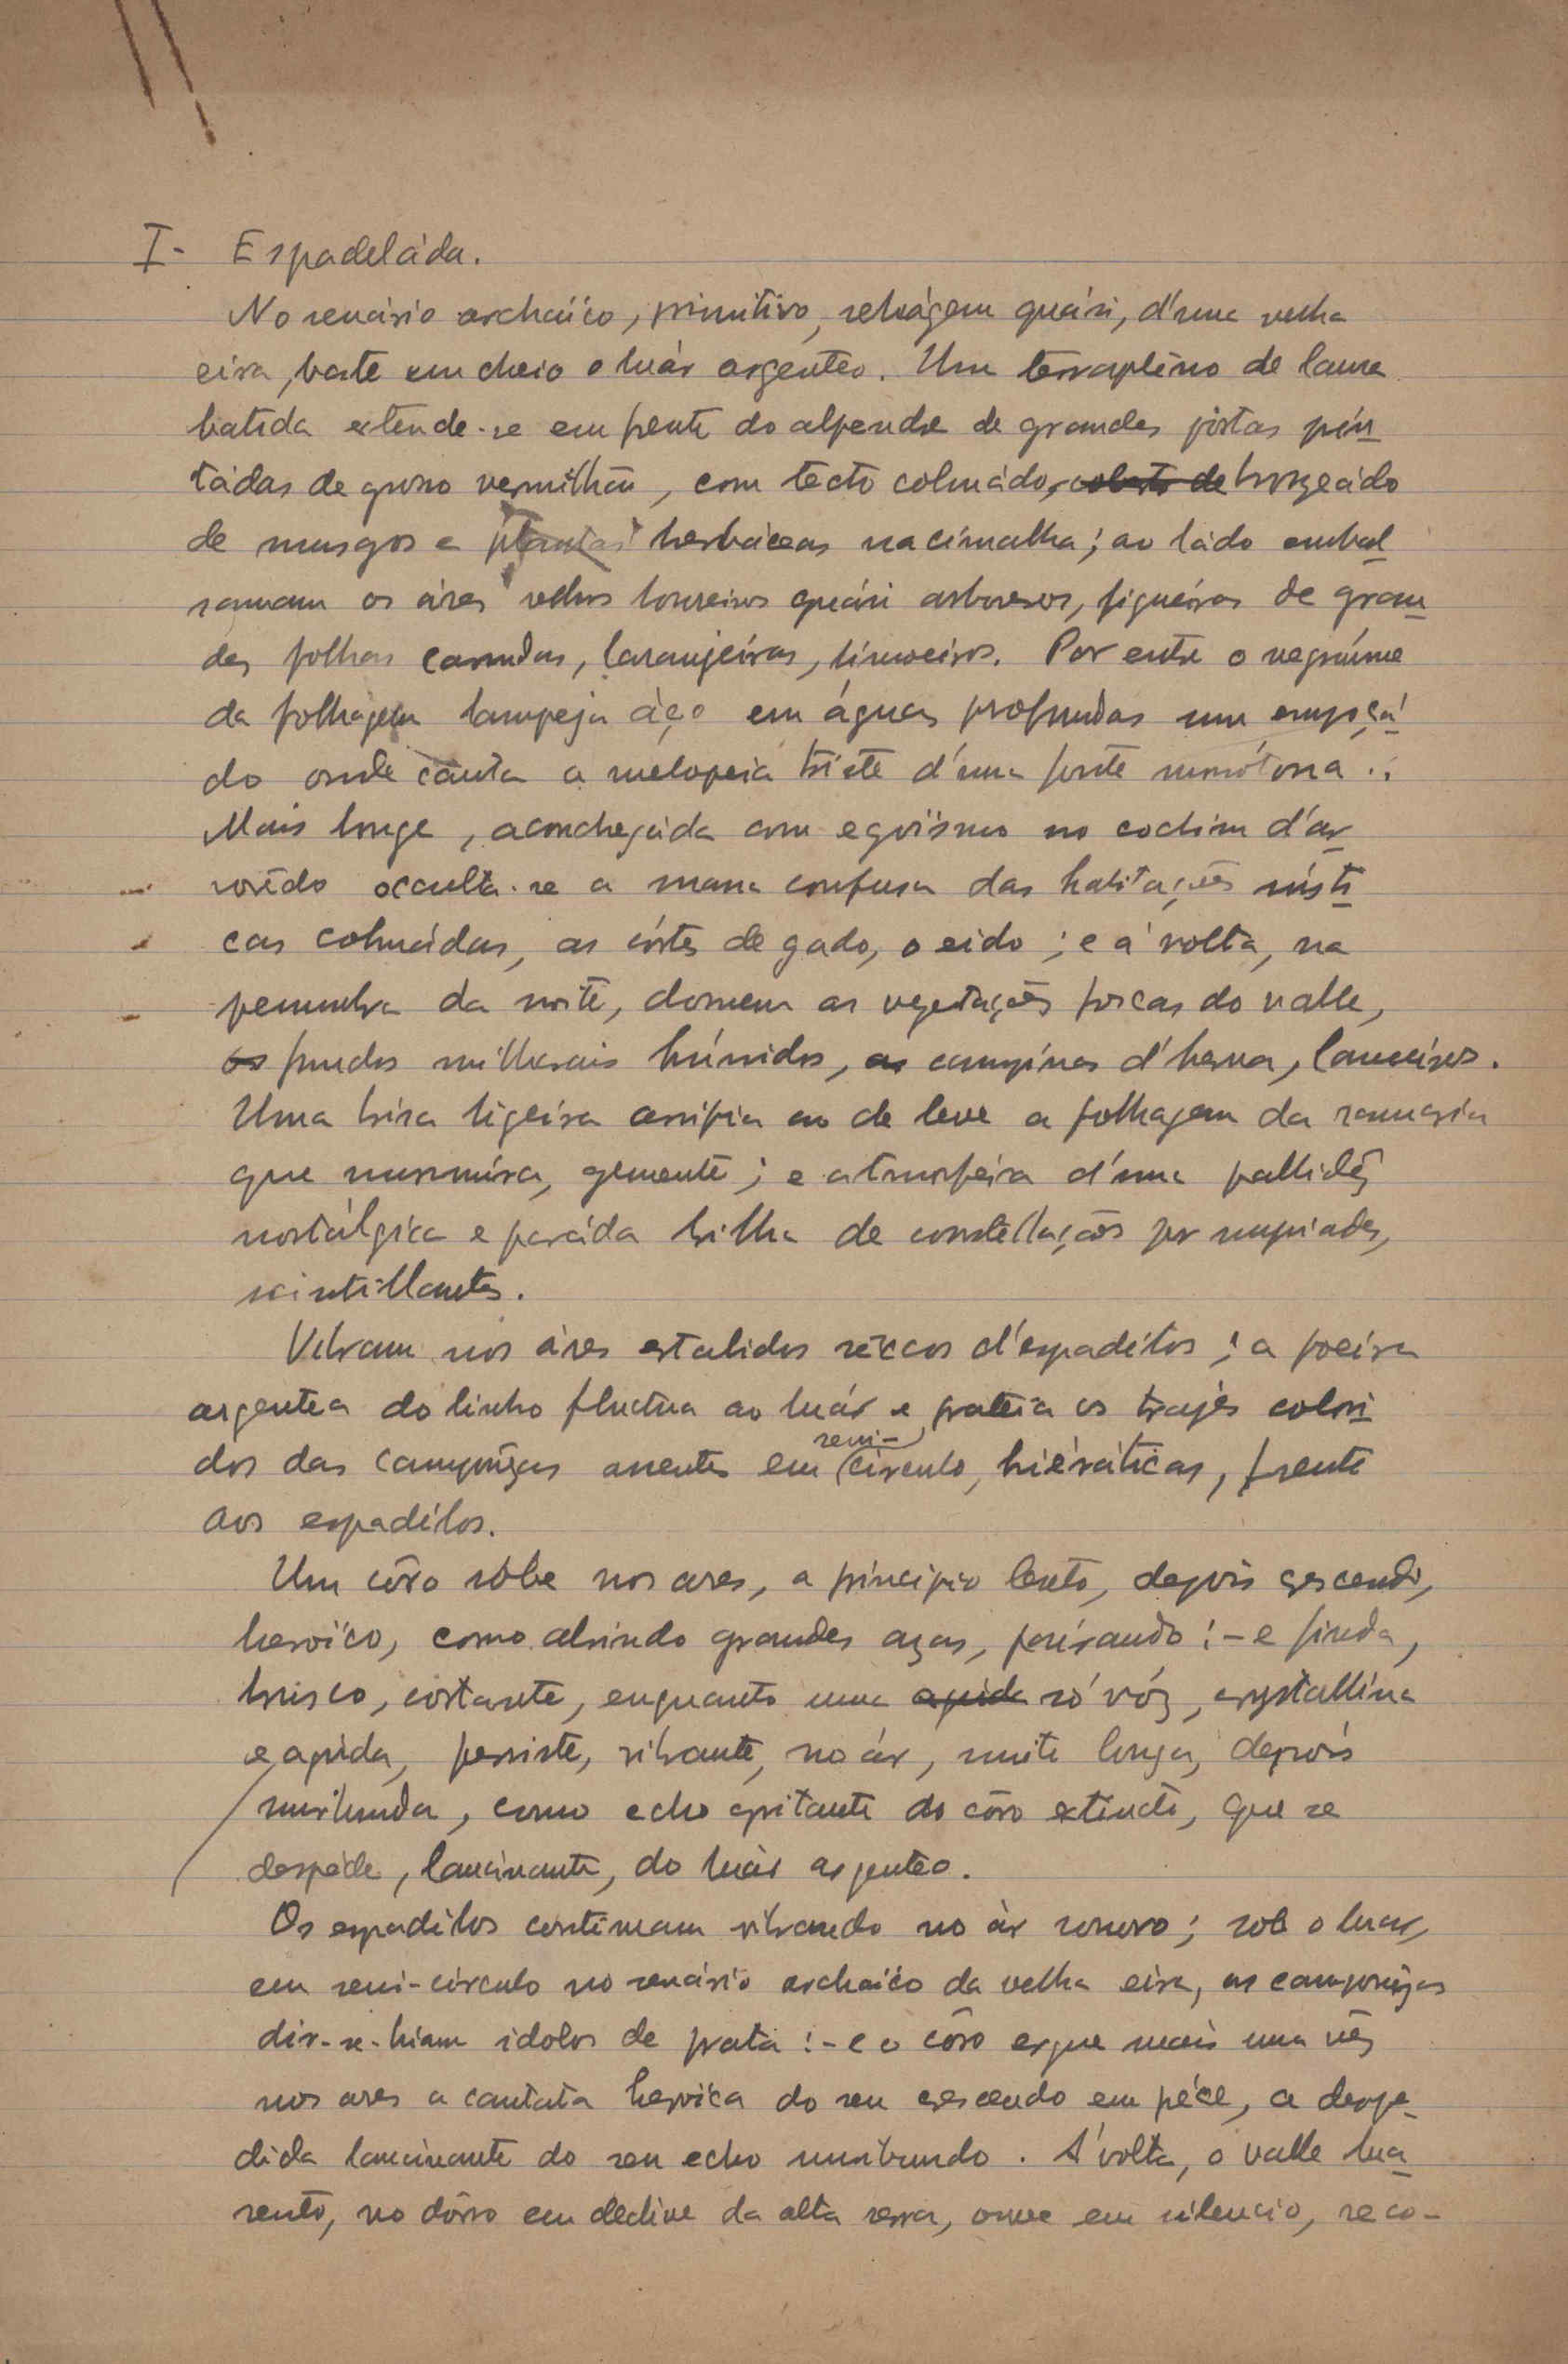 I- Espadeláda.
No scenário archaïco, primitivo, selvágem quási, d'uma velha
eira, bate em cheio o luár argenteo. Um terrapléno de lama
batida extende-se em frente do alpendre de grandes portas pin
tádas de grosso vermilhão, com tecto colmádo, coberto de bronzeádo
de musgos e plantas herbáceas na cimalha; ao ládo embal
samam os áres velhos loureiros quási arboreos, figueíras de gran
des folhas carnudas, laranjeíras, limoeiros. Por entre o negrúme
da folhagem lampeja áço em águas profundas um empoçá
do onde canta a melopeia triste d'uma fonte monótona..
Mais longe, aconchegáda com egoïsmo no cochim d'ar
vorêdo occulta-se a massa confusa das habitações rústi
cas colmádas, as córtes de gado, o eido; e á volta, na
penumbra da noite, dormem as vegetações foscas do valle,
os fundos milherais húmidos, as campínas d'herva, lameiros.
Uma brisa ligeira arripia ao de leve a folhagem da ramaria
que murmúra, gemente; e atmosfeira d'uma pallidêz
nostálgica e paráda brilha de constellações por
scintillantes.
Vibram nos áres estalidos sêccos d'espadélos; a poeira
argentea do linho fluctua ao luár e prateia os trajes colori
dos das camponêzas assentes em semi-círculo, hiéráticas, frente
aos espadélos.
Um côro sóbe nos ares, a principio lento, depois crescendo,
heroïco, como abrindo grandes azas, pairando:-e finda,
brusco, cortante, enquanto uma aguda só vóz, crystallína
e aguda, persiste, vibrante, no ár, muito longa, depois
muribunda, como echo gritante do côro extincto, que se
despéde, lancinante, do luár argenteo.
Os espadélos continuam vibrando no ár sonoro; sob o luar,
em semi-círculo no scenário archaïco da velha eira, as camponêzas
dir-se-hiam idolos de prata:-e o côro ergue mais uma vêz
nos ares a cantata heroïca do seu crescendo em préce, a despe-
dida lancinante do seu echo muribundo. Á volta, o valle lua
rento, no dôrso em declive da alta serra, ouve em silencio, reco-